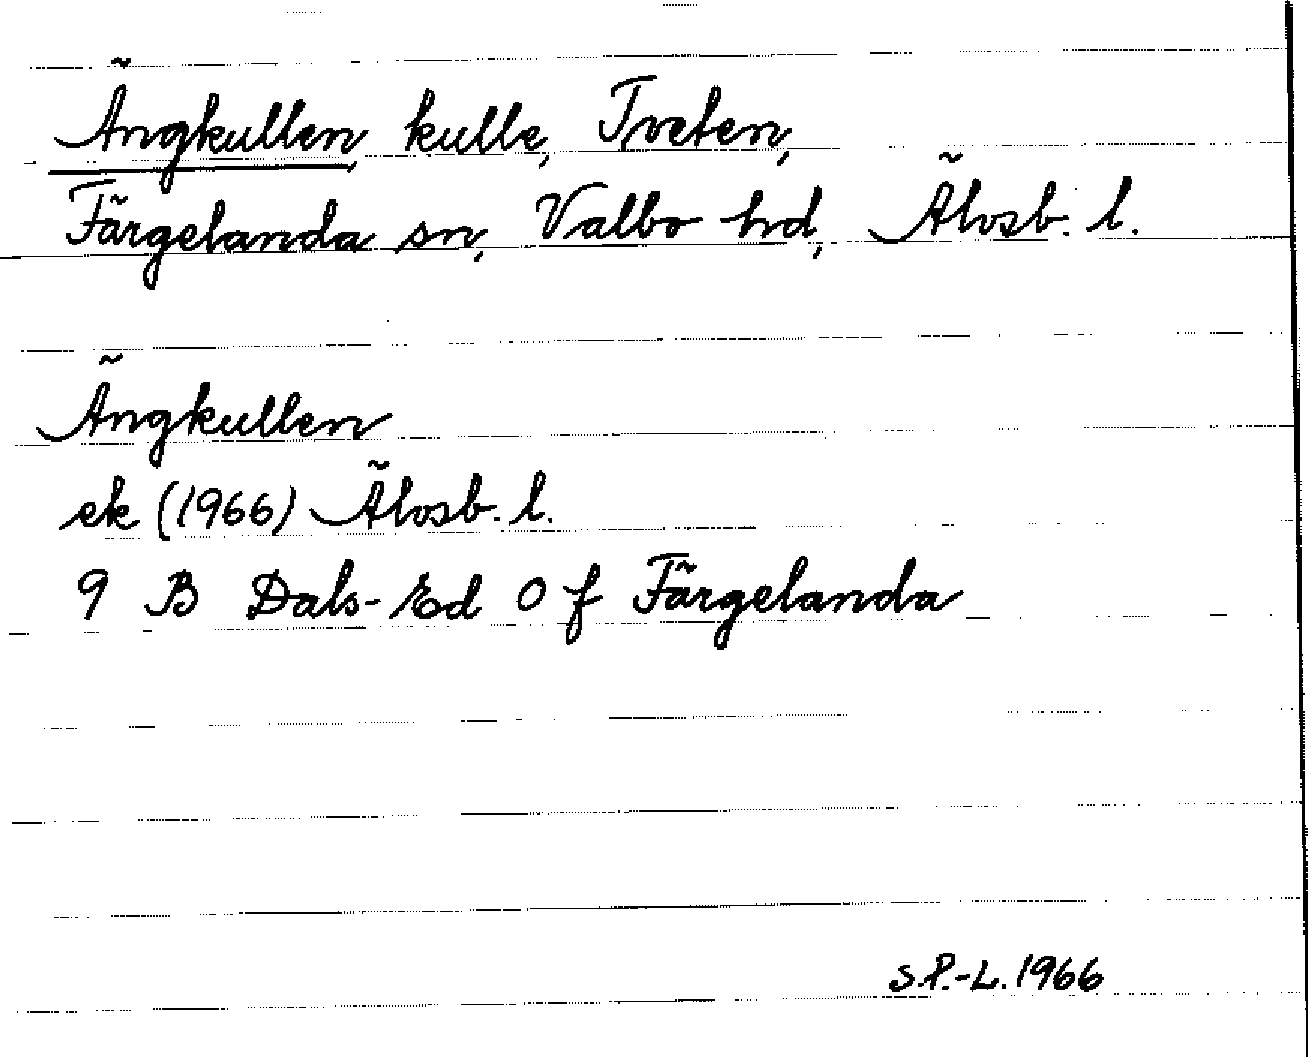 Ängkullen, kulle, Tveten,
Färgelanda sn, Valbo hd, Älvsb. l.
Ängkullen
ek (1966) Älvsb. l.
9 B Dals-Ed 0 f Färgelanda
S.P.-L. 1966